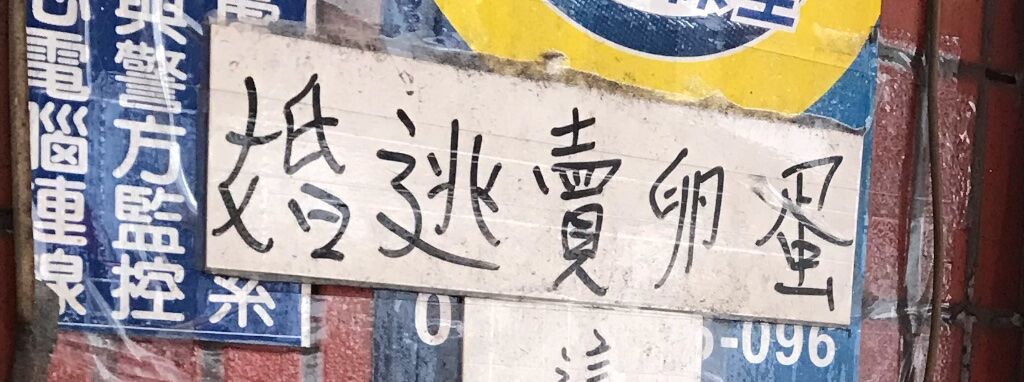 婚逃賣卵蛋
系
與警方監控
電腦連線
0
-096